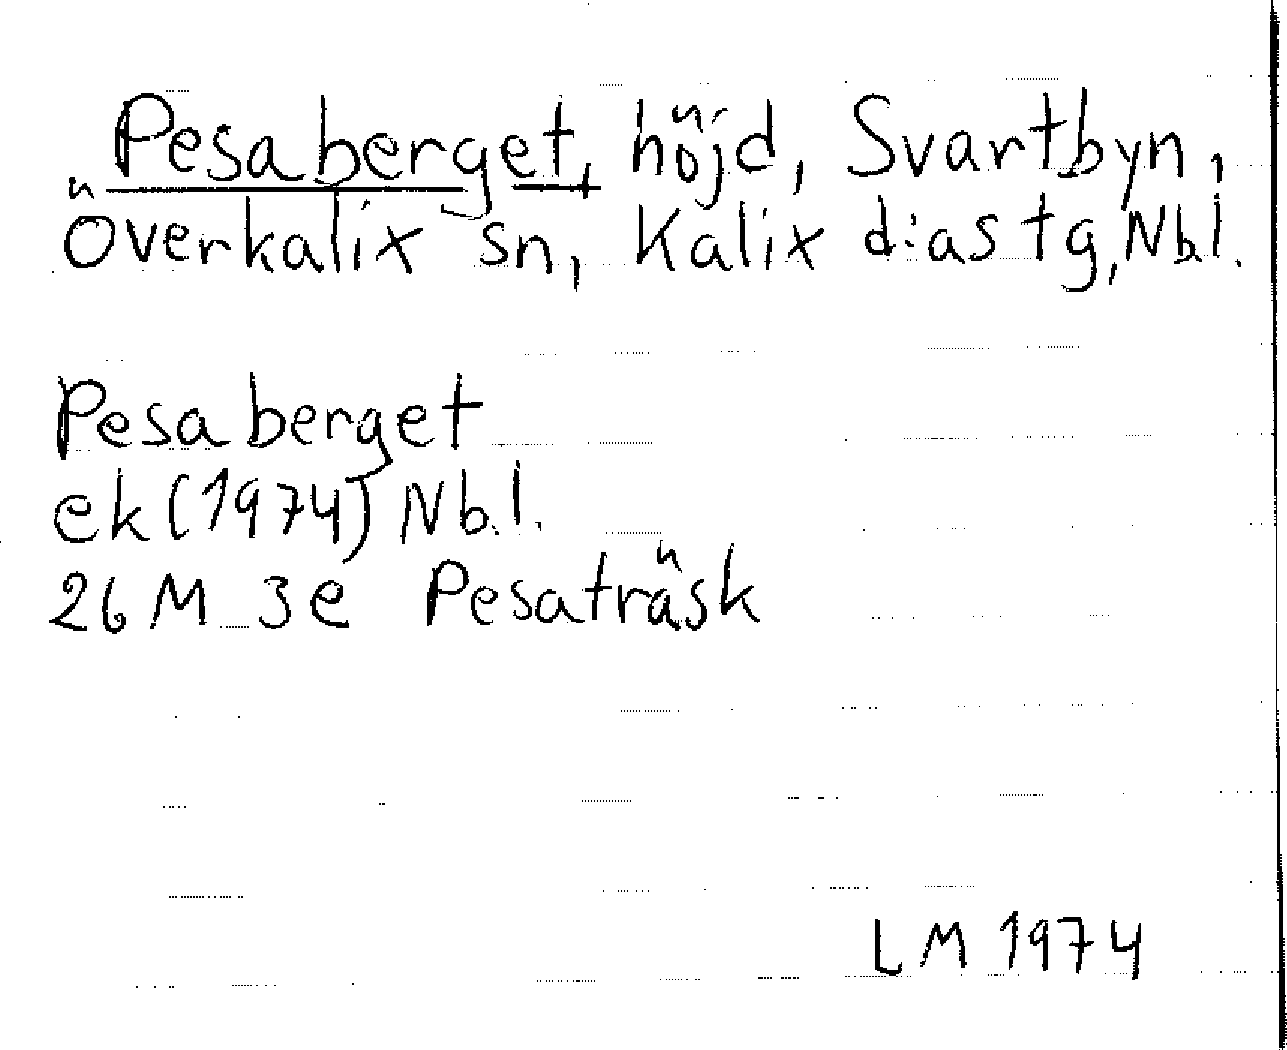 Pesaberget, höjd, Svartbyn,
Överkalix sn, Kalix d:as tg, Nbl.
Pesaberget
ek (1974) Nb.l.
26 M 3e Pesaträsk
LM 1974